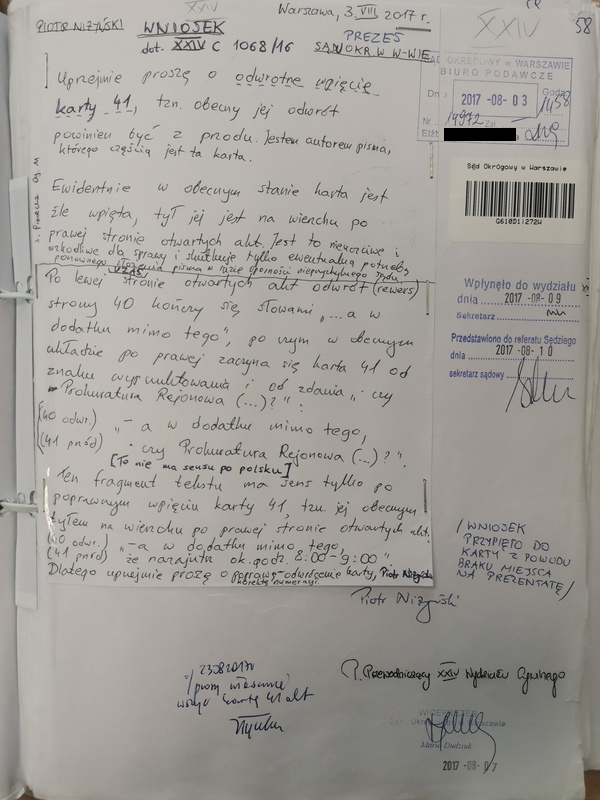 XXIV
58
Warszawa, 3.VIII 2017 r.
PIOTR NIŻYŃSKI
WNIOSEK
PREZES
dot. XXIV C 1068/16
SĄD OKR. W W-WIE
SĄD OKRĘGOWY w WARSZAWIE
BIURO PODAWCZE
2017 -08- 03
1458
14972
Uprzejmie proszę o odwrotne wpięcie
karty 41, tzn. obecny jej odwrót
powinien być z przodu. Jestem autorem pisma,
którego częścią jest ta karta.
Sąd Okręgowy w Warszawie
Ewidentnie w obecnym stanie karta jest
źle wpięta, tył jej jest na wierchu po
prawej stronie otwartych akt. Jest to nieuczciwe i
szkodliwe dla sprawy i skutkuje tylko ewentualną potrzebą
ponownego złożenia pisma w razie oporności nieprzychylnego Sądu.
Po lewej stronie otwartych akt odwrót (rewers)
strony 40 kończy się słowami „...a w
dodatku mimo tego", po czym w obecnym
układzie po prawej zaczyna się karta 41 od
znaku wypunktowania i od zdania „· czy
Prokuratura Rejonowa (...)?":
(40 odwr.) „– a w dodatku mimo tego,
(41 przód) · czy Prokuratura Rejonowa (...)?".
[To nie ma sensu po polsku]
Ten fragment tekstu ma sens tylko po
poprawnym wpięciu karty 41, tzn. jej obecnym
tyłem na wierchu po prawej stronie otwartych akt.
(40 odwr.) „–a w dodatku mimo tego,
(41 przód) że nazajutrz ok. godz. 8:00–9:00"
Dlatego uprzejmie proszę o poprawę – odwrócenie karty, Piotr Niżyński
korektę numeracji.
Piotr Niżyński
Wpłynęło do wydziału
dnia 2017 -08- 09
Sekretarz
Przedstawiono do referatu Sędziego
dnia 2017 -08- 10
sekretarz sądowy
/WNIOSEK
PRZYPIĘTO DO
KARTY Z POWODU
BRAKU MIEJSCA
NA PREZENTATĘ/
P. Przewodniczący XXIV Wydziału Cywilnego
23.08.2017r
kartę 41 akt
Maria Dudziuk
2017 -08- 07